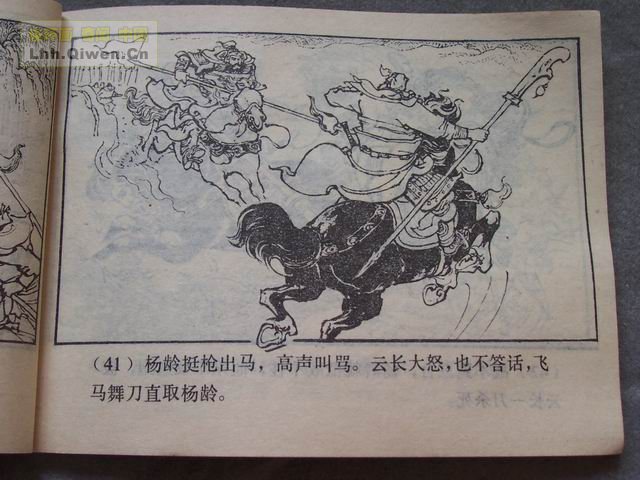 Lhh.Qiwen.Cn
(41) 杨龄挺枪出马，高声叫骂。云长大怒，也不答话，飞
马舞刀直取杨龄。